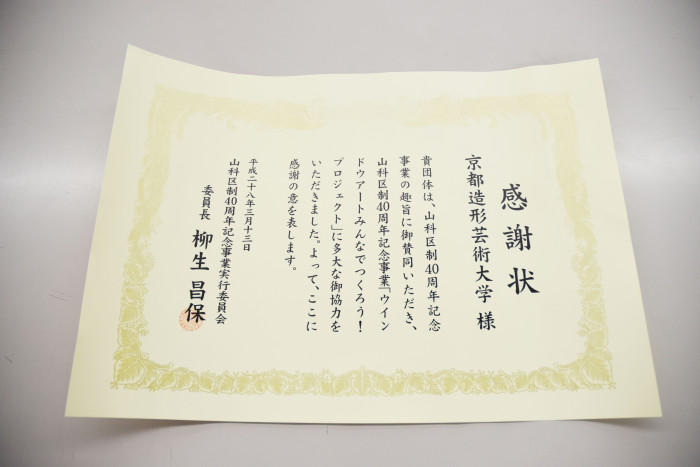 感謝状
京都造形芸術大学 様
貴団体は、山科区制40周年記念
事業の趣旨に御賛同いただき、
山科区制40周年記念事業「ウイン
ドウアートみんなでつくろう！
プロジェクト」に多大な御協力を
いただきました。よって、ここに
感謝の意を表します。
平成二十八年三月十三日
山科区制40周年記念事業実行委員会
委員長 柳生昌保